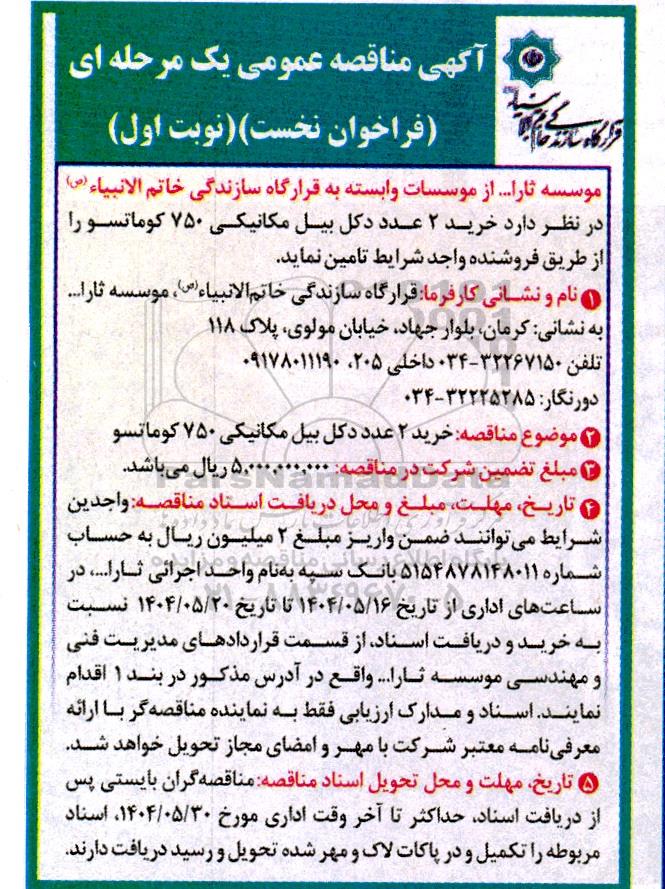 قرارگاه سازندگی خاتم الانبیاء
آگهی مناقصه عمومی یک مرحله ای
(فراخوان نخست)(نوبت اول)
موسسه ثارا... از موسسات وابسته به قرارگاه سازندگی خاتم الانبیاء(ص)
در نظر دارد خرید ۲ عدد دکل بیل مکانیکی ۷۵۰ کوماتسو را
از طریق فروشنده واجد شرایط تامین نماید.
۱ نام و نشانی کارفرما: قرارگاه سازندگی خاتم‌الانبیاء(ص)، موسسه ثارا...
به نشانی: کرمان، بلوار جهاد، خیابان مولوی، پلاک ۱۱۸
تلفن ۳۲۲۶۷۱۵۰-۰۳۴ داخلی ۲۰۵، ۰۹۱۷۸۰۱۱۱۹۰
دورنگار: ۳۲۲۲۵۲۸۵-۰۳۴
۲ موضوع مناقصه: خرید ۲ عدد دکل بیل مکانیکی ۷۵۰ کوماتسو
۳ مبلغ تضمین شرکت در مناقصه: ۵,۰۰۰,۰۰۰,۰۰۰ ریال می‌باشد.
۴ تاریخ، مهلت، مبلغ و محل دریافت اسناد مناقصه: واجدین
شرایط می‌توانند ضمن واریز مبلغ ۲ میلیون ریال به حساب
شماره ۵۱۵۴۸۷۸۱۴۸۰۱۱ بانک سپه به‌نام واحد اجرائی ثارا...، در
ساعت‌های اداری از تاریخ ۱۴۰۴/۰۵/۱۶ تا تاریخ ۱۴۰۴/۰۵/۲۰ نسبت
به خرید و دریافت اسناد، از قسمت قراردادهای مدیریت فنی
و مهندسی موسسه ثارا... واقع در آدرس مذکور در بند ۱ اقدام
نمایند. اسناد و مدارک ارزیابی فقط به نماینده مناقصه‌گر با ارائه
معرفی‌نامه معتبر شرکت با مهر و امضای مجاز تحویل خواهد شد.
۵ تاریخ، مهلت و محل تحویل اسناد مناقصه: مناقصه‌گران بایستی پس
از دریافت اسناد، حداکثر تا آخر وقت اداری مورخ ۱۴۰۴/۰۵/۳۰، اسناد
مربوطه را تکمیل و در پاکات لاک و مهر شده تحویل و رسید دریافت دارند.
ParsNamadData
پایگاه اطلاع رسانی مناقصه و مزایده